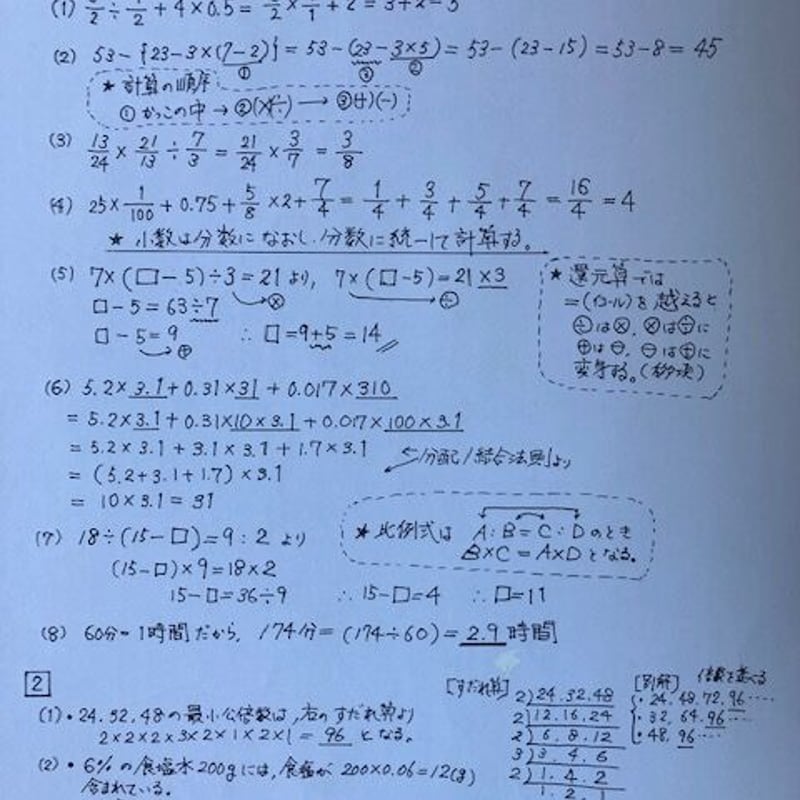 (1) 3/2 ÷ 1/2 + 4×0.5 = 3/2 × 2/1 + 2 = 3+2 = 5
(2) 53-{23-3×(7-2)} = 53-(23-3×5) = 53-(23-15) = 53-8 = 45
① ③ ②
★計算の順序
①かっこの中→②(×)(÷)→③(+)(-)
(3) 13/24 × 21/13 ÷ 7/3 = 21/24 × 3/7 = 3/8
(4) 25× 1/100 + 0.75 + 5/8 ×2+ 7/4 = 1/4 + 3/4 + 5/4 + 7/4 = 16/4 = 4
★小数は分数になおし、分数に統一して計算する。
(5) 7×(□-5)÷3=21より, 7×(□-5)=21×3
□-5=63÷7 ⊗ ÷
□-5=9 ∴ □=9+5=14
⊕
★還元算では
=(イコール)を越えると
÷は⊗, ⊗は÷に
⊕は⊖, ⊖は⊕に
変身する。(秘訣)
(6) 5.2×3.1+0.31×31+0.017×310
=5.2×3.1+0.31×10×3.1+0.017×100×3.1
=5.2×3.1+3.1×3.1+1.7×3.1
=(5.2+3.1+1.7)×3.1 分配/結合法則より
=10×3.1=31
(7) 18÷(15-□)=9:2 より
(15-□)×9=18×2
15-□=36÷9 ∴ 15-□=4 ∴ □=11
★比例式は A:B=C:Dのとき
B×C=A×Dとなる。
(8) 60分=1時間だから, 174分=(174÷60)=2.9時間
2
(1)・24.32.48の最小公倍数は,右のすだれ算より
2×2×2×3×2×1×2×1=96 となる。
(2)・6%の食塩水200gには,食塩が200×0.06=12(g)
含まれている。
[すだれ算]
2)24.32.48
2)12.16.24
2)6.8.12
3)3.4.6
2)1.4.2
1.2.1
[別解] 倍数を並べる
・24.48.72.96····
・32.64.96····
・48.96····